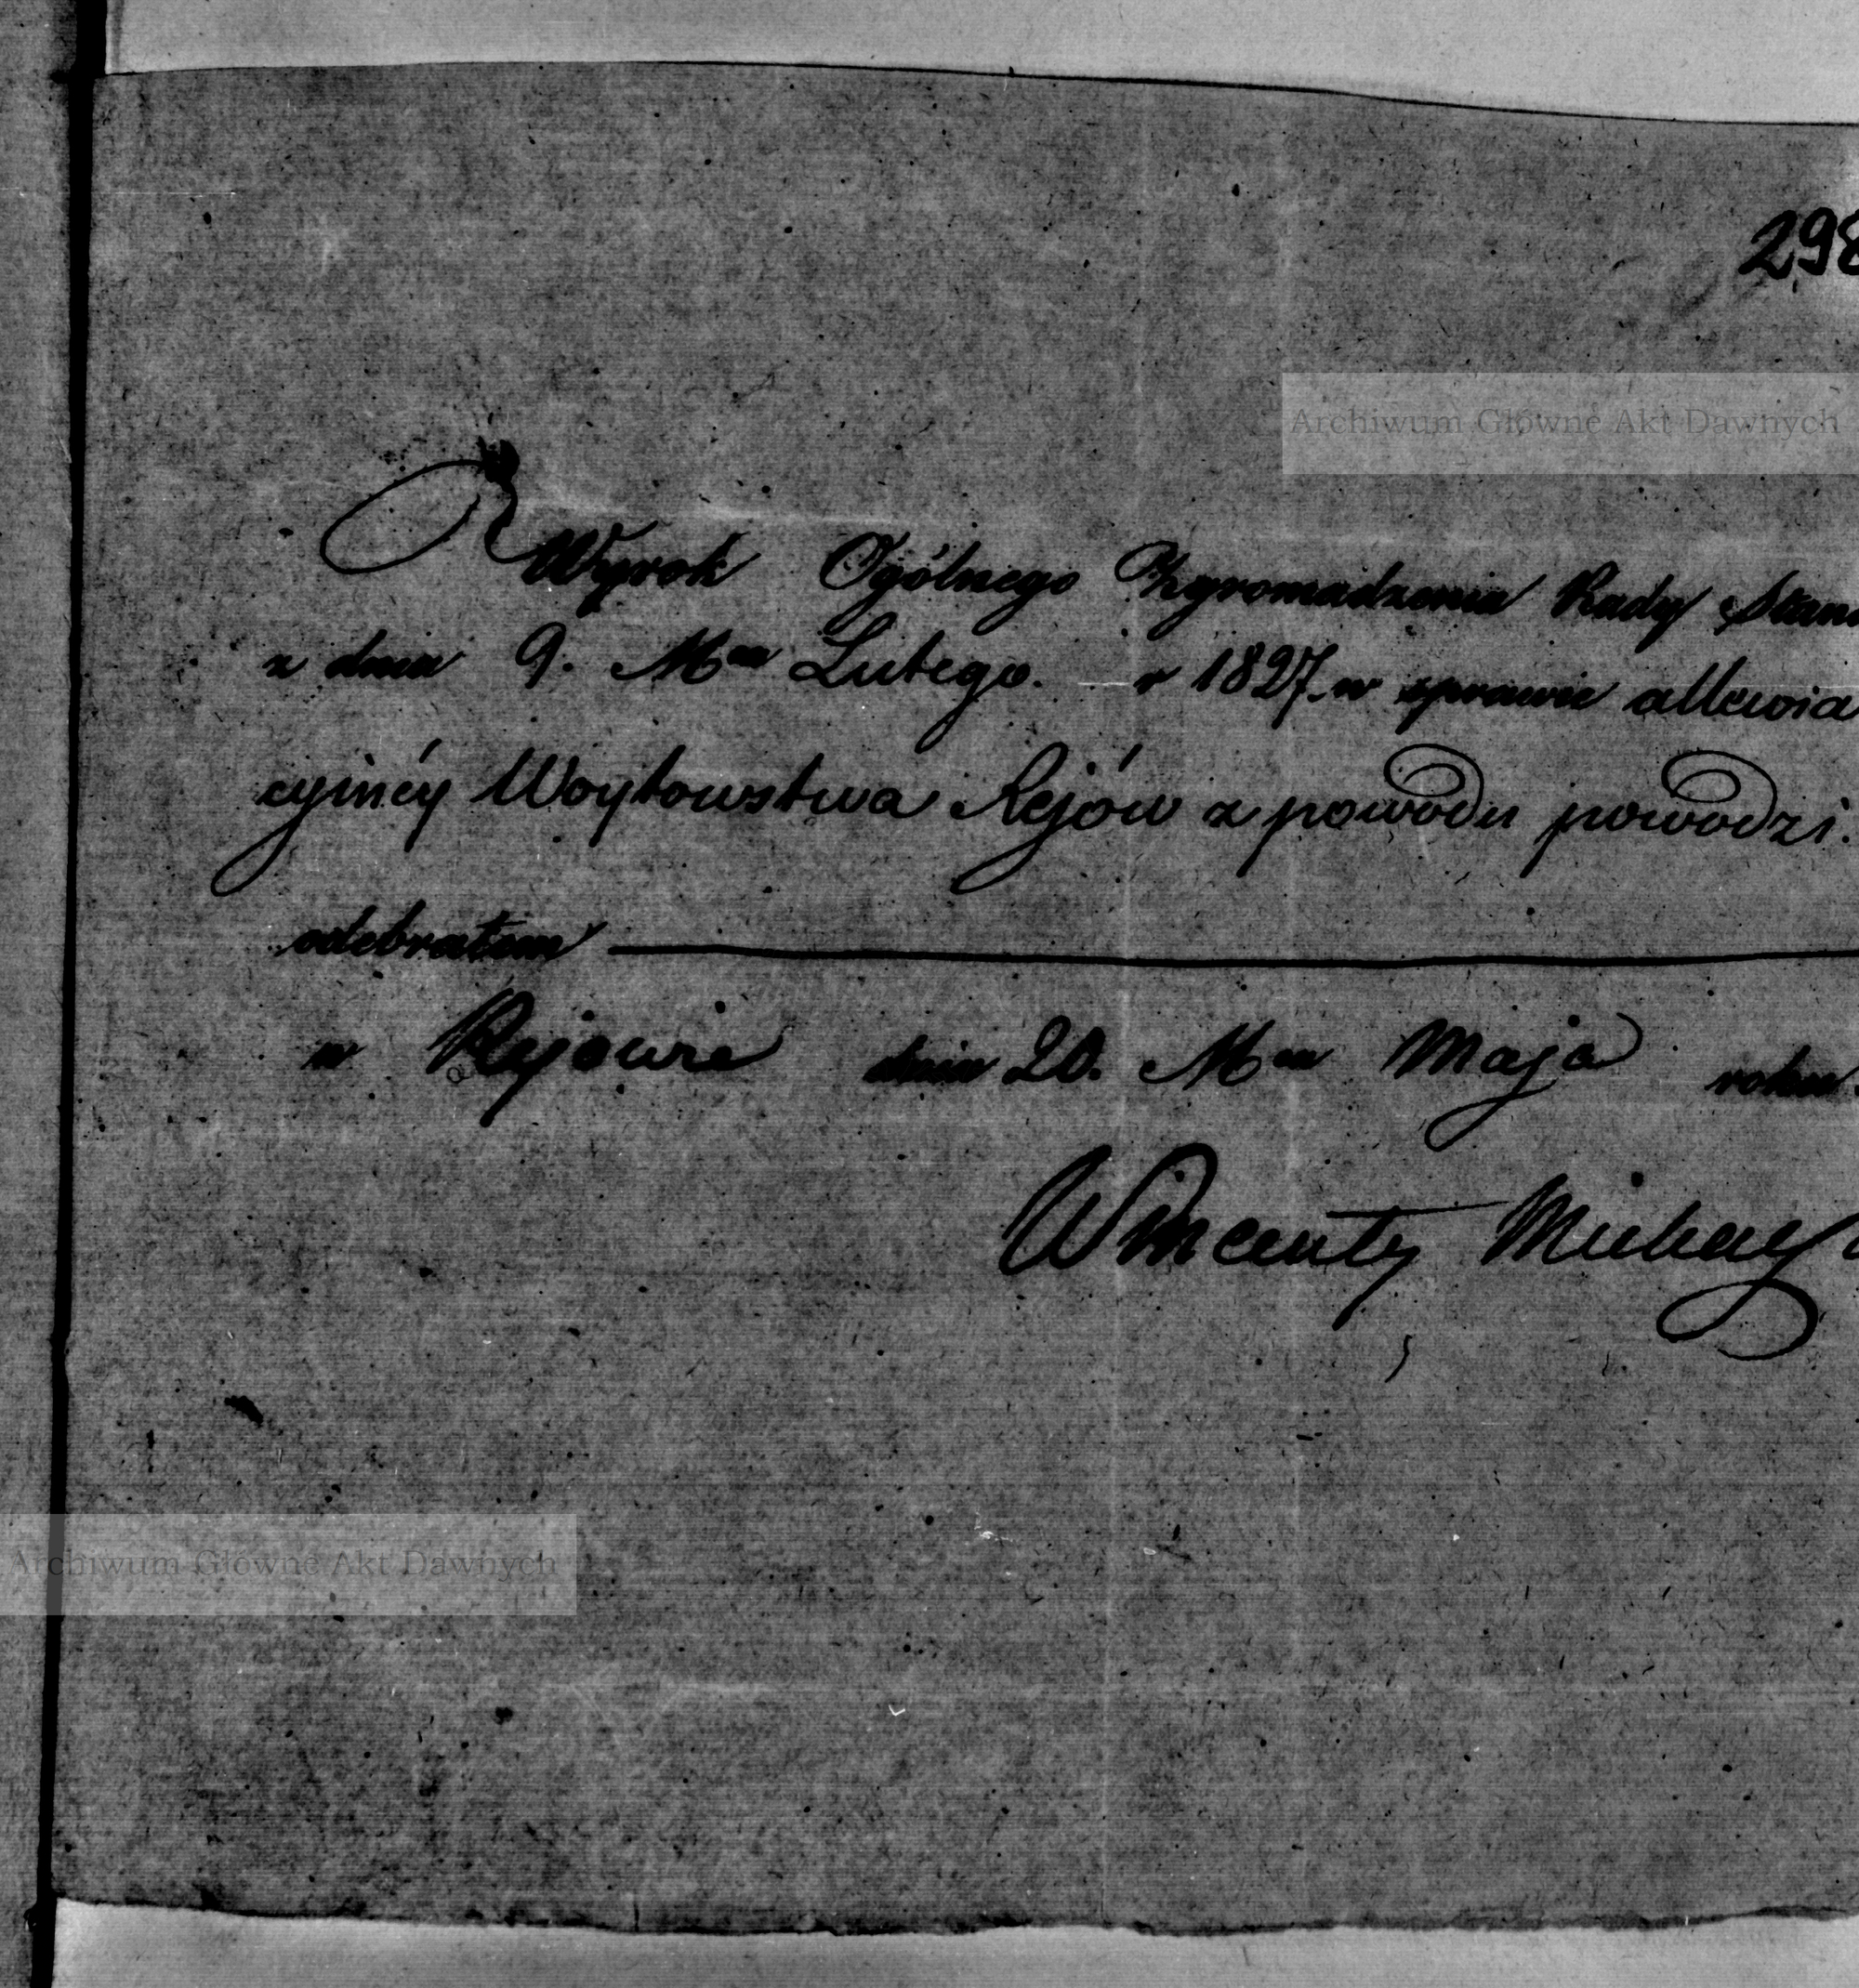 298
Archiwum Główne Akt Dawnych
Wyrok Ogólnego Zgromadzenia Rady Stanu
z dnia 9. Mca Lutego. r 1827 w sprawie allewia
cyinéy Woytowstwa Rejów z powodu powodzi.
odebrałem
w Rejowie dnia 20. Mca Maja roku
Wincenty
Archiwum Główne Akt Dawnych